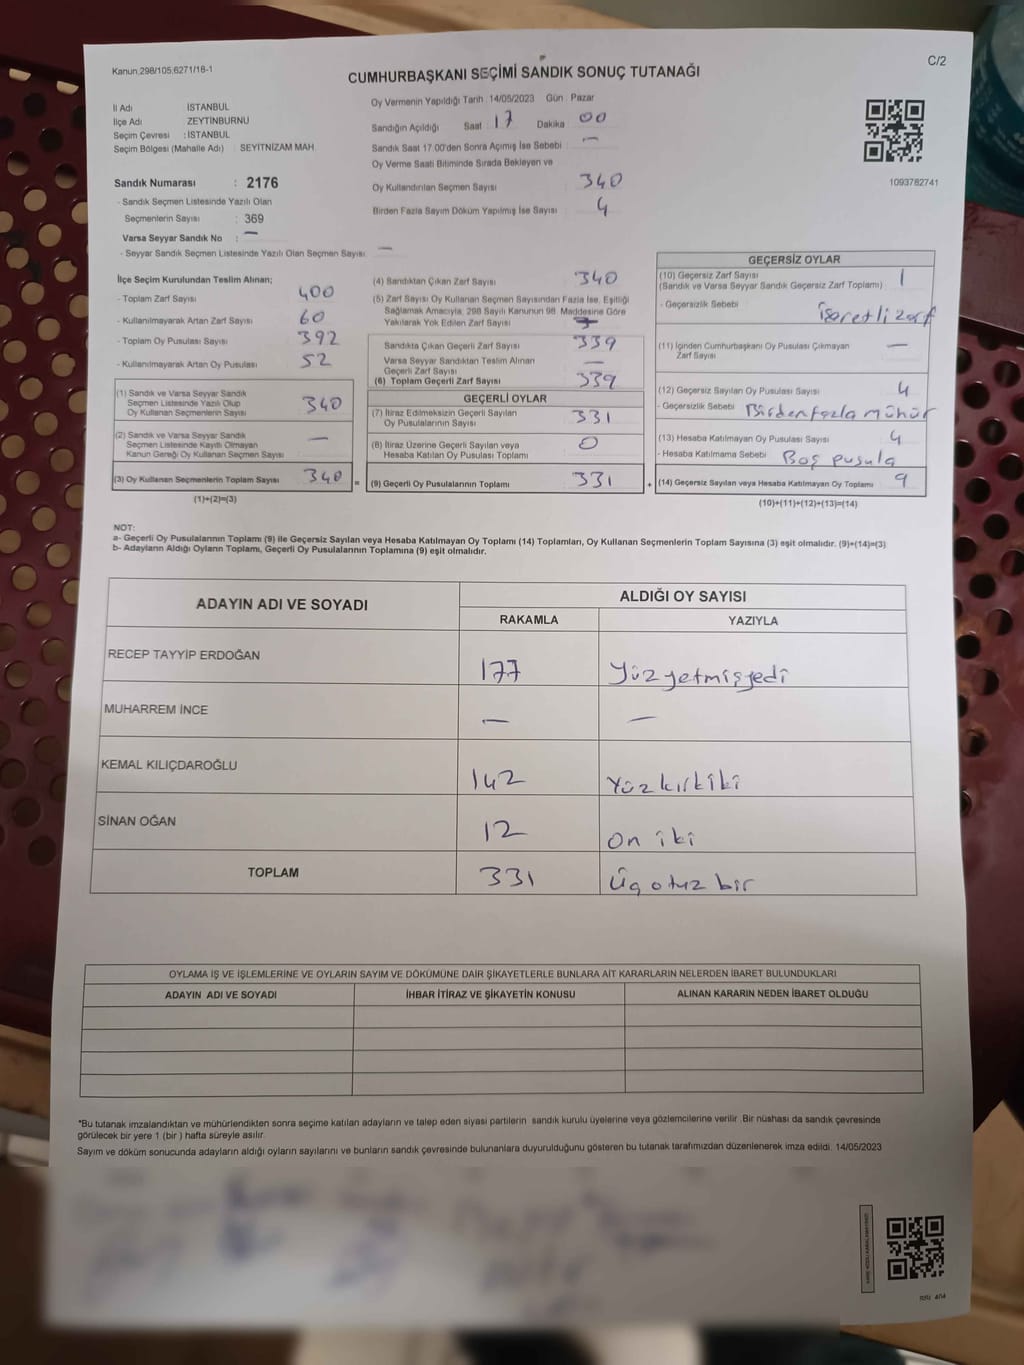 Kanun.298/105;6271/18-1
C/2
CUMHURBAŞKANI SEÇİMİ SANDIK SONUÇ TUTANAĞI
İl Adı İSTANBUL
İlçe Adı ZEYTİNBURNU
Seçim Çevresi : İSTANBUL
Seçim Bölgesi (Mahalle Adı) SEYİTNİZAM MAH
Sandık Numarası : 2176
- Sandık Seçmen Listesinde Yazılı Olan
Seçmenlerin Sayısı : 369
Varsa Seyyar Sandık No : —
- Seyyar Sandık Seçmen Listesinde Yazılı Olan Seçmen Sayısı: —
Oy Vermenin Yapıldığı Tarih 14/05/2023 Gün Pazar
Sandığın Açıldığı Saat 17 Dakika 00
Sandık Saat 17.00'den Sonra Açımış İse Sebebi —
Oy Verme Saati Bitiminde Sırada Bekleyen ve
Oy Kullandırılan Seçmen Sayısı 340
Birden Fazla Sayım Döküm Yapılmış İse Sayısı 4
1093782741
İlçe Seçim Kurulundan Teslim Alınan;
- Toplam Zarf Sayısı 400
- Kullanılmayarak Artan Zarf Sayısı 60
- Toplam Oy Pusulası Sayısı 392
- Kullanılmayarak Artan Oy Pusulası 52
(1) Sandık ve Varsa Seyyar Sandık
Seçmen Listesinde Yazılı Olup
Oy Kullanan Seçmenlerin Sayısı 340
(2) Sandık ve Varsa Seyyar Sandık
Seçmen Listesinde Kayıtlı Olmayan
Kanun Gereği Oy Kullanan Seçmen Sayısı —
(3) Oy Kullanan Seçmenlerin Toplam Sayısı 340
(1)+(2)=(3)
(4) Sandıktan Çıkan Zarf Sayısı 340
(5) Zarf Sayısı Oy Kullanan Seçmen Sayısından Fazla İse, Eşitliği
Sağlamak Amacıyla, 298 Sayılı Kanunun 98. Maddesine Göre
Yakılarak Yok Edilen Zarf Sayısı
Sandıkta Çıkan Geçerli Zarf Sayısı 339
Varsa Seyyar Sandıktan Teslim Alınan
Geçerli Zarf Sayısı —
(6) Toplam Geçerli Zarf Sayısı 339
GEÇERLİ OYLAR
(7) İtiraz Edilmeksizin Geçerli Sayılan
Oy Pusulalarının Sayısı 331
(8) İtiraz Üzerine Geçerli Sayılan veya
Hesaba Katılan Oy Pusulası Toplamı 0
= (9) Geçerli Oy Pusulalarının Toplamı 331
GEÇERSİZ OYLAR
(10) Geçersiz Zarf Sayısı
(Sandık ve Varsa Seyyar Sandık Geçersiz Zarf Toplamı) 1
- Geçersizlik Sebebi işaretli zarf
(11) İçinden Cumhurbaşkanı Oy Pusulası Çıkmayan
Zarf Sayısı —
(12) Geçersiz Sayılan Oy Pusulası Sayısı 4
- Geçersizlik Sebebi Birden fazla mühür
(13) Hesaba Katılmayan Oy Pusulası Sayısı 4
- Hesaba Katılmama Sebebi Boş pusula
+ (14) Geçersiz Sayılan veya Hesaba Katılmayan Oy Toplamı 9
(10)+(11)+(12)+(13)=(14)
NOT:
a- Geçerli Oy Pusulalarının Toplamı (9) ile Geçersiz Sayılan veya Hesaba Katılmayan Oy Toplamı (14) Toplamları, Oy Kullanan Seçmenlerin Toplam Sayısına (3) eşit olmalıdır. (9)+(14)=(3)
b- Adayların Aldığı Oyların Toplamı, Geçerli Oy Pusulalarının Toplamına (9) eşit olmalıdır.
ADAYIN ADI VE SOYADI
ALDIĞI OY SAYISI
RAKAMLA YAZIYLA
RECEP TAYYİP ERDOĞAN 177 Yüz yetmiş yedi
MUHARREM İNCE — —
KEMAL KILIÇDAROĞLU 142 Yüz kırk iki
SİNAN OĞAN 12 On iki
TOPLAM 331 Üç otuz bir
OYLAMA İŞ VE İŞLEMLERİNE VE OYLARIN SAYIM VE DÖKÜMÜNE DAİR ŞİKAYETLERLE BUNLARA AİT KARARLARIN NELERDEN İBARET BULUNDUKLARI
ADAYIN ADI VE SOYADI İHBAR İTİRAZ VE ŞİKAYETİN KONUSU ALINAN KARARIN NEDEN İBARET OLDUĞU
*Bu tutanak imzalandıktan ve mühürlendikten sonra seçime katılan adayların ve talep eden siyasi partilerin sandık kurulu üyelerine veya gözlemcilerine verilir .Bir nüshası da sandık çevresinde
görülecek bir yere 1 (bir ) hafta süreyle asılır.
Sayım ve döküm sonucunda adayların aldığı oyların sayılarını ve bunların sandık çevresinde bulunanlara duyurulduğunu gösteren bu tutanak tarafımızdan düzenlenerek imza edildi. 14/05/2023